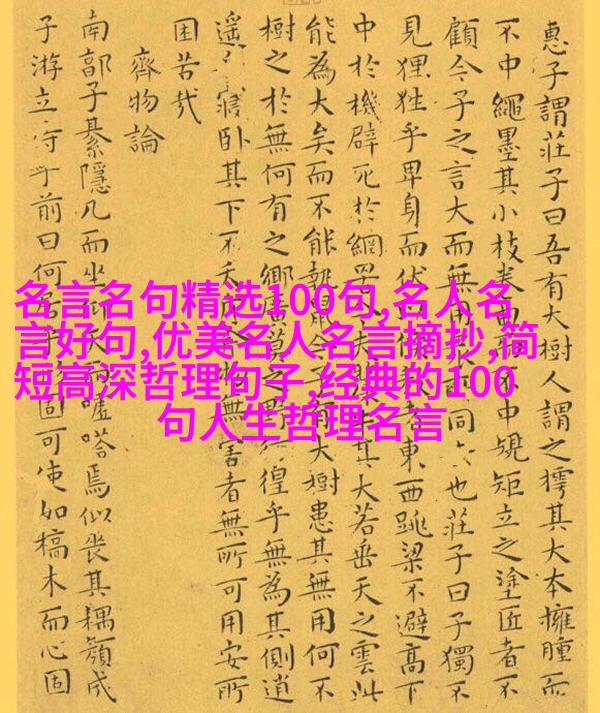 惠子謂莊子曰吾有大樹人謂之樗其大本擁腫而
不中繩墨其小枝卷曲而不中規矩立之塗匠者不
顧今子之言大而無用同也莊子曰子獨不
見狸狌乎卑身而伏東西跳梁不避高下
中於機辟死於網其大若垂天之雲此
能為大矣而不能執鼠今子有大樹患其無用何不
樹之於無何有之鄉廣莫之野徨乎無為其側逍
遙寢臥其下不夭物無害者無所可用安所
困苦哉
齊物論
南郭子綦隱几而坐仰天而噓嗒焉似喪其耦顏成
子游立侍乎前曰何居乎形固可使如槁木而心固
名言名句精选100句,名人名
言好句,优美名人名言摘抄,简
短高深哲理句子 经典的100
句人生哲理名言